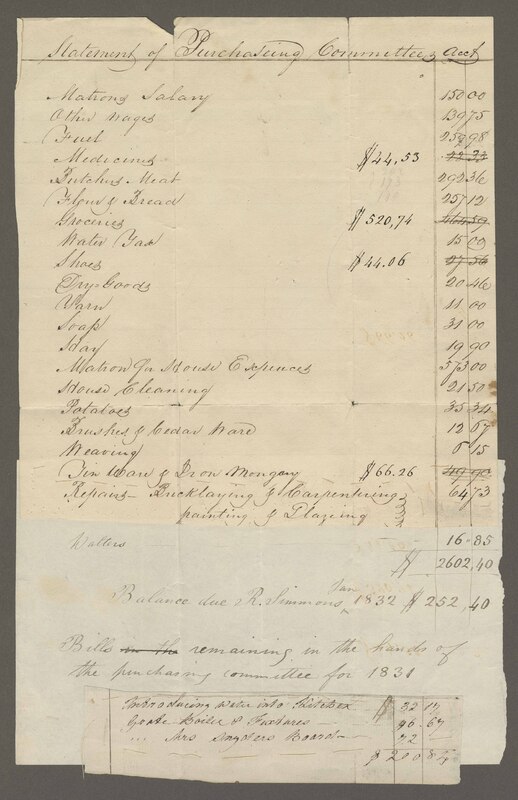 Statement of Purchasing Committees acct
Matrons Salary 150 00
Other wages 139 75
Fuel 259 98
Medicine $44.53
Butchers Meat 292 36
Flour & Bread 257 12
Groceries $520,74
Water Tax 15 00
Shoes $44.06
Dry-Goods 20 46
Yarn 11 00
Soap 31 00
Hay 19 90
Matron for House Expences 573 00
House Cleaning 21 50
Potatoes 35 34
Brushes & Cedar Ware 12 67
Weaving 6 15
Tin Ware & Iron Mongary $66.26
Repairs- Bricklaying & Carpentring 64 73
painting & Glazing
16.85
$ 2602,40
Balance due R. Simmons Jan 1832 $252,40
Bills in the remaining in the hands of
the purchasing committee for 1831
Introducing water into Kitchen $ 32 17
Boiler & Fixtures 96 67
Mrs Snyders Board 72
$ 200 84